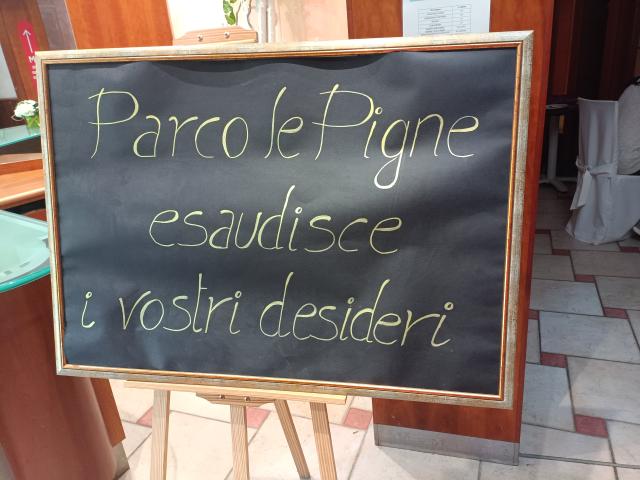 Parco le Pigne
esaudisce
i vostri desideri